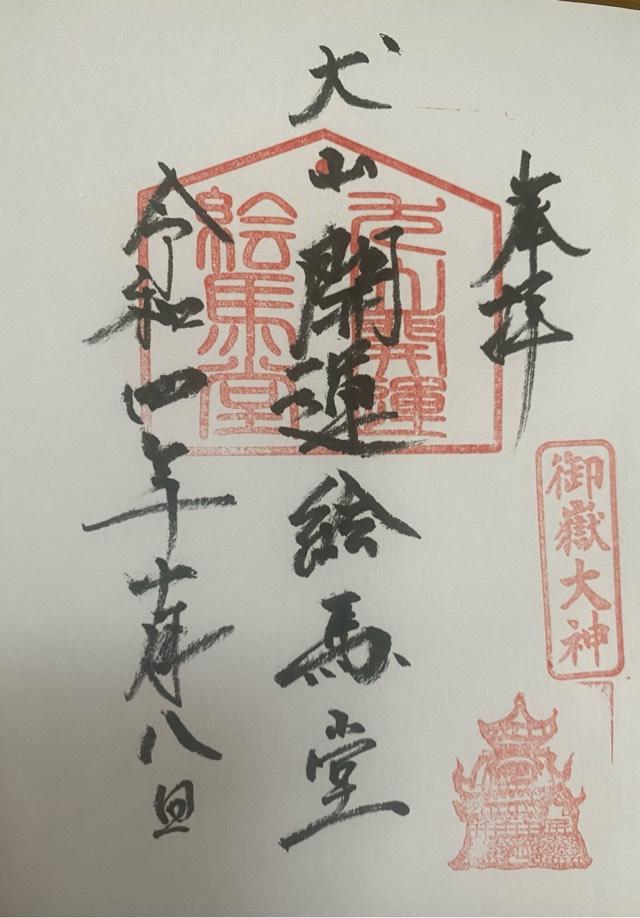 奉拝
御嶽大神
犬山開運絵馬堂
犬山開運
絵馬堂
令和四年十月八日